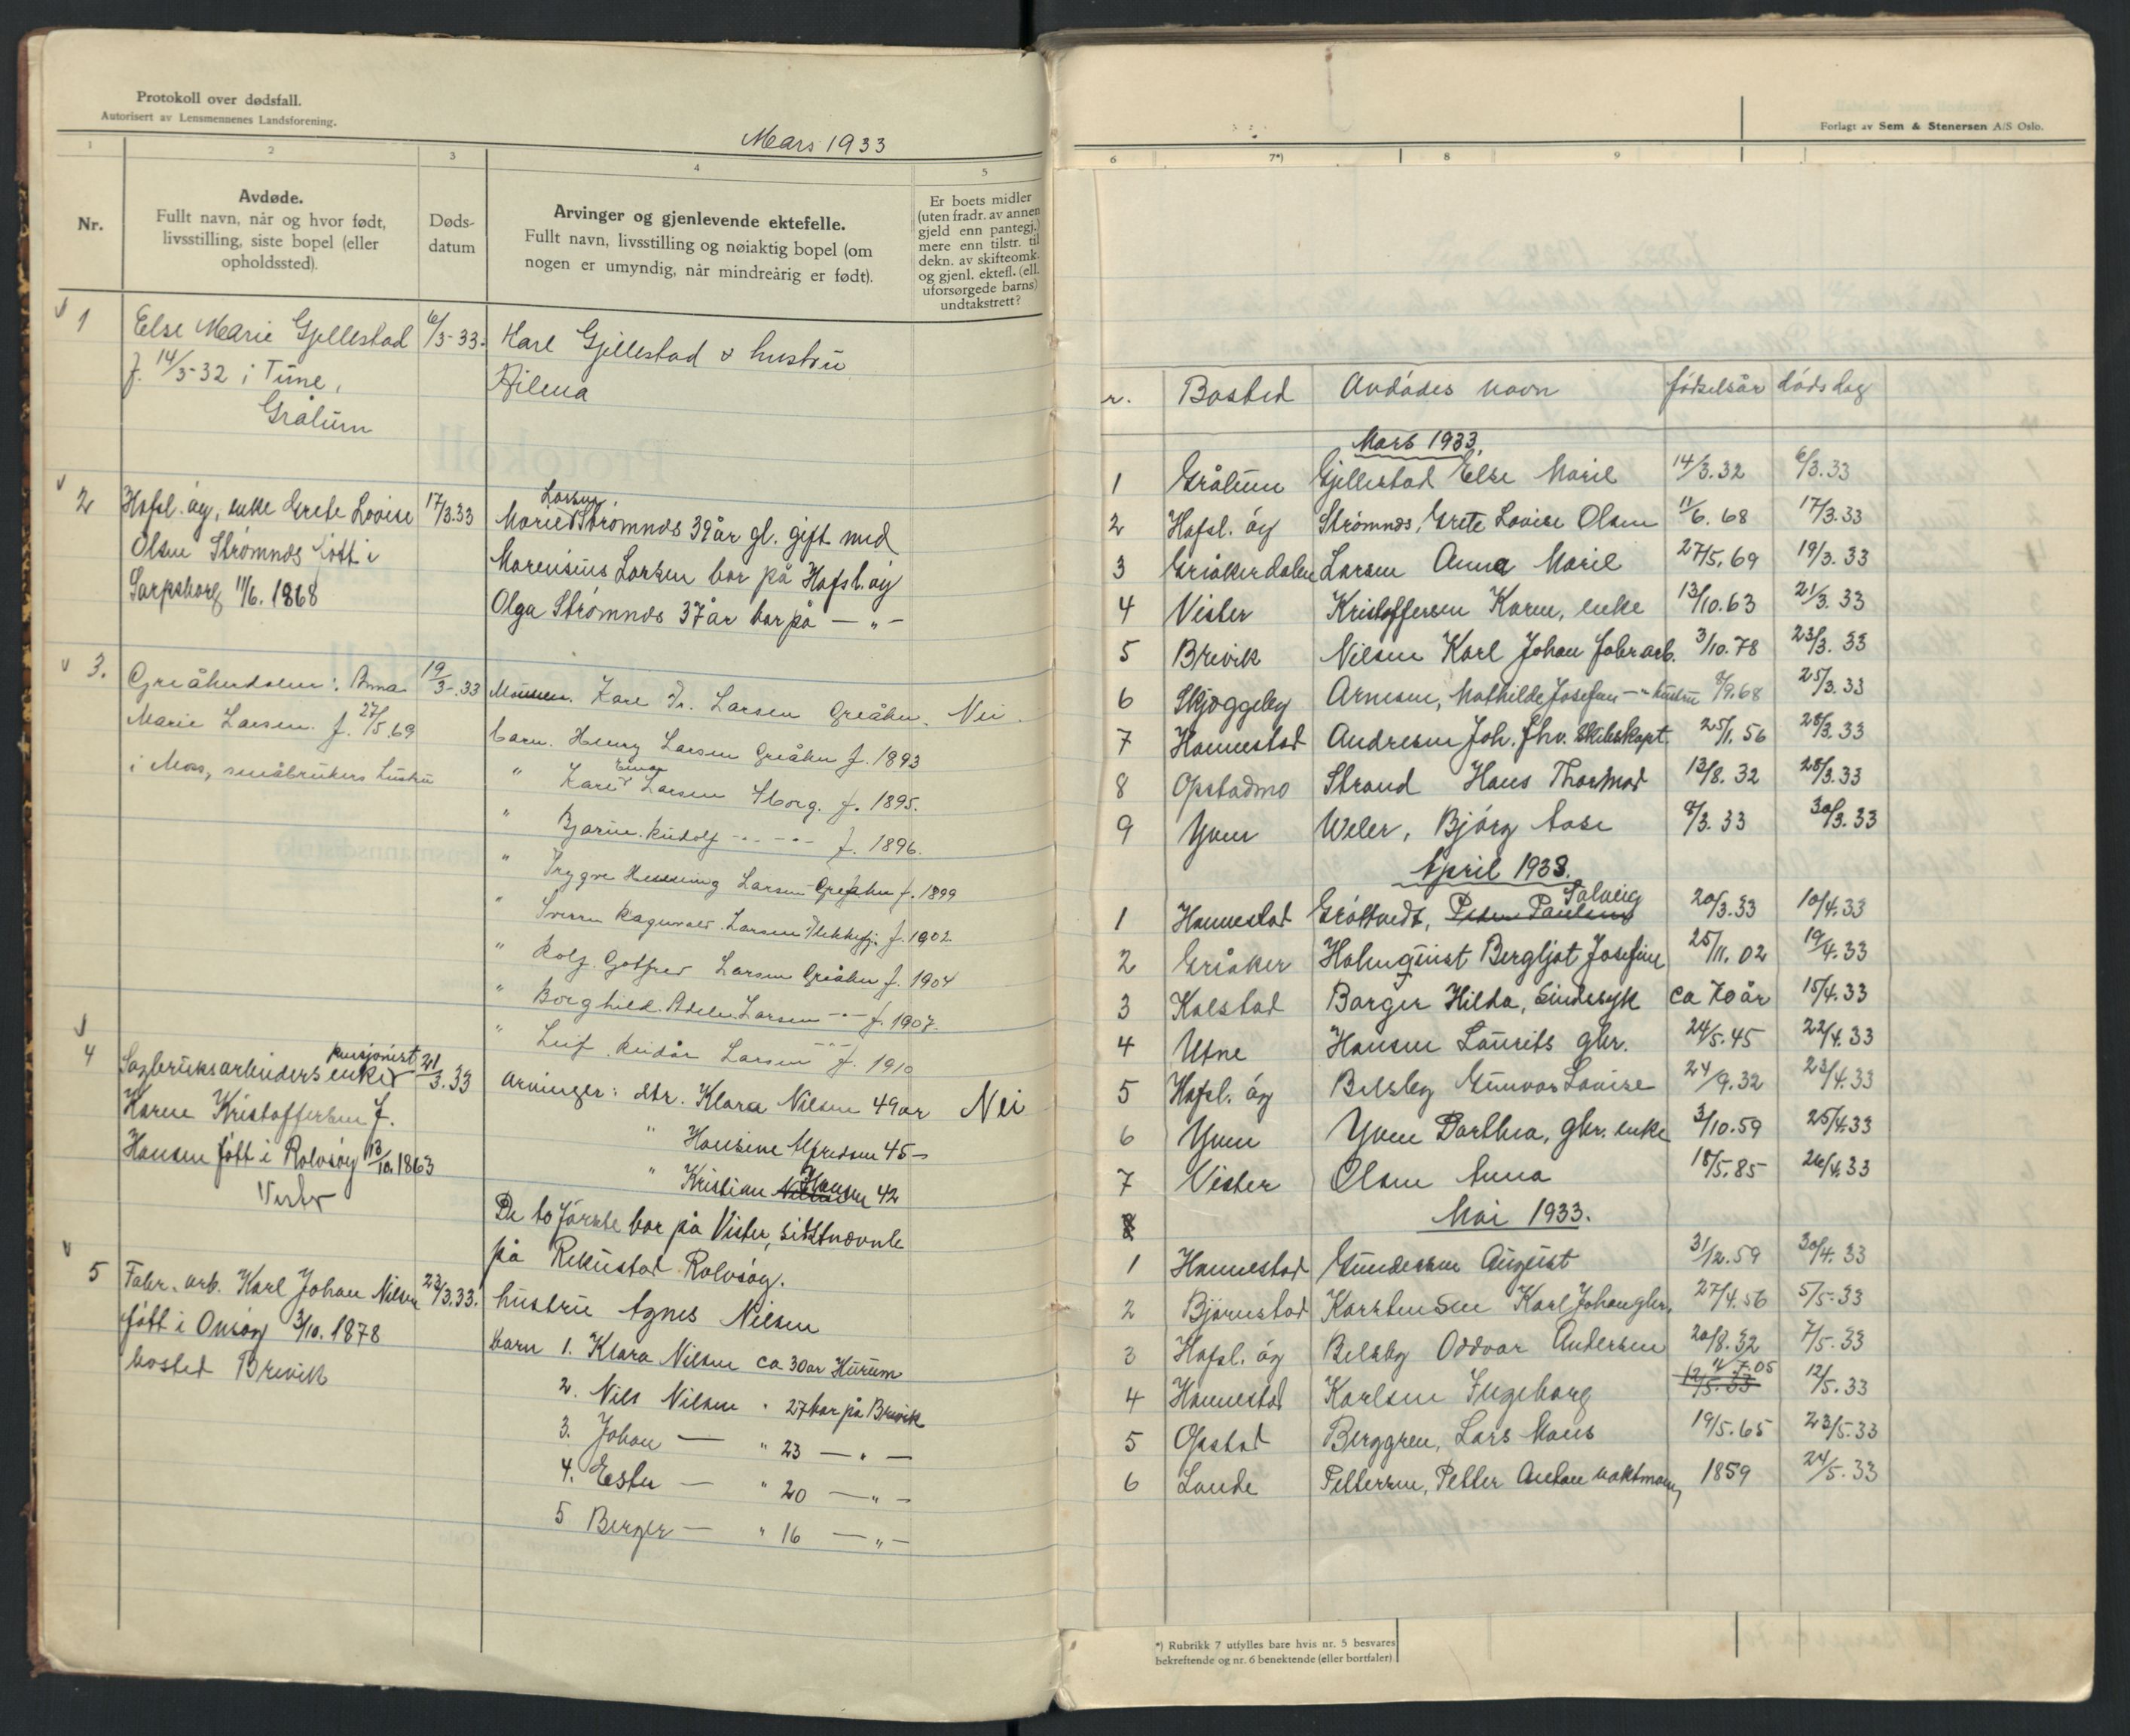 Protokoll over dødsfall.
Autorisert av Lensmennenes Landsforening.
Mars 1933
1 2 3 4 5
Nr.
Avdøde.
Fullt navn, når og hvor født,
livsstilling, siste bopel (eller
opholdssted).
Døds-
datum
Arvinger og gjenlevende ektefelle.
Fullt navn, livsstilling og nøiaktig bopel (om
nogen er umyndig, når mindreårig er født).
Er boets midler
(uten fradr. av annen
gjeld enn pantegj.)
mere enn tilstr. til
dekn. av skifteomk.
og gjenl. ektefl. (ell.
uforsørgede barns)
undtakstrett?
1 Else Marie Gjellestad 6/3-33. Karl Gjellestad & hustru
f. 14/3-32 i Tune, Hilena
Grålum
2 Hafsl. øy, enke Grete Lovise 17/3.33 Marie Larsen. Strømnes 39 år gl. gift med
Olsen Strømnes født i Marensius Larsen bor på Hafsl. øy
Sarpsborg 11/6. 1868 Olga Strømnes 37 år bor på — „ —
3. Greåkerdalen: Anna 19/3-33 Mannen. Kare Fr. Larsen Greåker. Nei.
Marie Larsen. f. 27/5.69 barn. Henry Larsen Greåker f. 1893
i Moss, småbrukers hustru " Kare Einar Larsen Sborg. f. 1895.
" Bjarne Rudolf -- -- f. 1896.
" Trygve Henning Larsen Greåker f. 1899
" Sverre Ragnvald Larsen Flekkefj. f. 1902.
" Rolf Gotfred Larsen Greåker f. 1904
" Borghild Adele Larsen -"- f. 1907.
" Leif Reidar Larsen -"- f. 1910
4 Sagbruksarbeiders enke pensjonert 21/3.33 Arvinger: dtr. Klara Nilsen 49 år Nei
Karen Kristoffersen f. " Hansine Alfredsen 45 -
Hansen født i Rolvsøy 13/10.1863 " Kristian Nilsen Hansen 42
Vister De to første bor på Vister, sistnevnte
på Rekustad Rolvsøy.
5 Fabr. arb. Karl Johan Nilsen 23/3.33. hustru Agnes Nilsen
født i Onsøy 3/10. 1878 barn 1. Klara Nilsen ca 30 år Hurum
bosted Brevik 2. Nils Nilsen " 27 bor på Brevik
3. Johan — " 23 — " —
4. Ester — " 20 — " —
5 Berger — " 16 — " —
Forlagt av Sem & Stenersen A/S Oslo.
6 7*) 8 9
r. Bosted Avdødes navn fødselsår dødsdag
Mars 1933.
1 Grålum Gjellestad Else Marie 14/3.32 6/3.33
2 Hafsl. øy Strømnes, Grete Lovise Olsen 11/6. 68 17/3.33
3 Greåkerdalen Larsen Anna Marie 27/5.69 19/3.33
4 Vister Kristoffersen Karen, enke 13/10.63 21/3.33
5 Brevik Nilsen Karl Johan fabr arb. 3/10.78 23/3.33
6 Skjeggeby Arnesen, Mathilde Josefine -"- hustru 8/9.68 25/3.33
7 Hannestad Andresen Joh. Fhv. Skibskapt. 25/1.56 28/3.33
8 Opstadmo Strand Hans Thormod 13/8.32 28/3.33
9 Yven Weler, Bjørg Aase 8/3.33 30/3.33
April 1933.
1 Hannestad Grøttvedt, Peder Paulsen Solveig 20/3.33 10/4.33
2 Greåker Holmquist Bergljot Josefine 25/11.02 19/4.33
3 Kalstad Borger Hilda, Sindssyk ca 70 år 15/4.33
4 Utne Hansen Laurits gbr. 24/5.45 22/4.33
5 Hafsl. øy Belsby Gunvor Lovise 24/9.32 23/4.33
6 Yven Yven Dorthea, gbr. enke 3/10.59 25/4.33
7 Vister Olsen Anna 18/5.85 26/4.33
8
Mai 1933.
1 Hannestad Gundersen August 31/12.59 30/4.33
2 Bjørnstad Karstensen Karl Johan gbr. 27/4.56 5/5-33
3 Hafsl. øy Belsby Oddvar Andersen 20/8.32 7/5.33
4 Hannestad Karlsen Ingeborg 12/5.33 11/7.05 12/5.33
5 Opstad Berggren, Lars Maus 19/5.65 23/5.33
6 Lande Pettersen, Petter Anton vaktmann 1859 24/5.33
*) Rubrikk 7 utfylles bare hvis nr. 5 besvares
bekreftende og nr. 6 benektende (eller bortfaler)